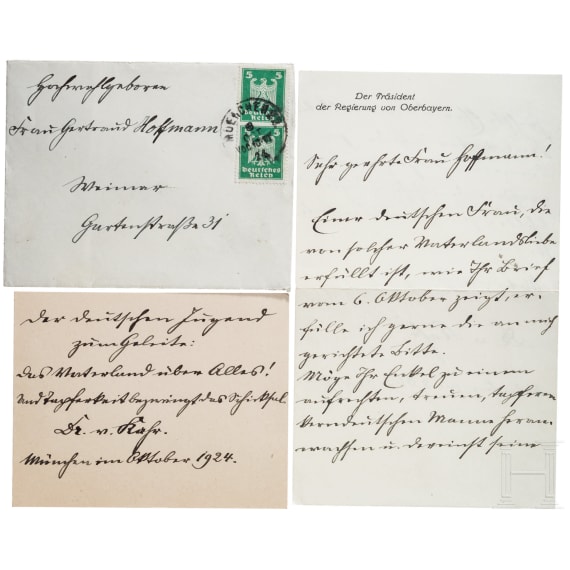 Hochwohlgeboren
Frau Gertraud Hoffmann
Weimar
Gartenstraße 31
5 5
Deutsches
Reich
5
Deutsches
Reich
MUENCHEN
Der deutschen Jugend
zum Geleite:
Das Vaterland über Alles!
Und Tapferkeit bezwingt das Schicksal.
Dr. v. Kahr.
München im Oktober 1924.
Der Präsident
der Regierung von Oberbayern.
Sehr geehrte Frau Hoffmann!
Einer deutschen Frau, die
von solcher Vaterlandsliebe
erfüllt ist, wie Ihr Brief
vom 6. Oktober zeigt, er-
fülle ich gerne die an mich
gerichtete Bitte.
Möge Ihr Enkel zu einem
aufrechten, treuen, tapferen
kerndeutschen Manne heran-
wachsen u. dereinst seine